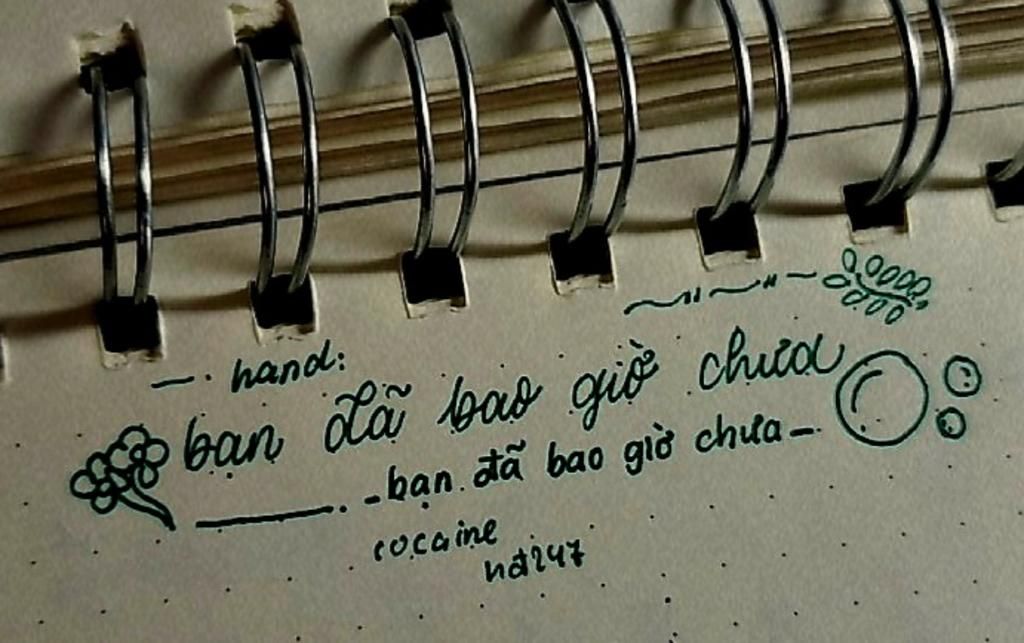 — . hand:
bạn đã bao giờ chưa
_______. -bạn đã bao giờ chưa-.
cocaine
nđ247